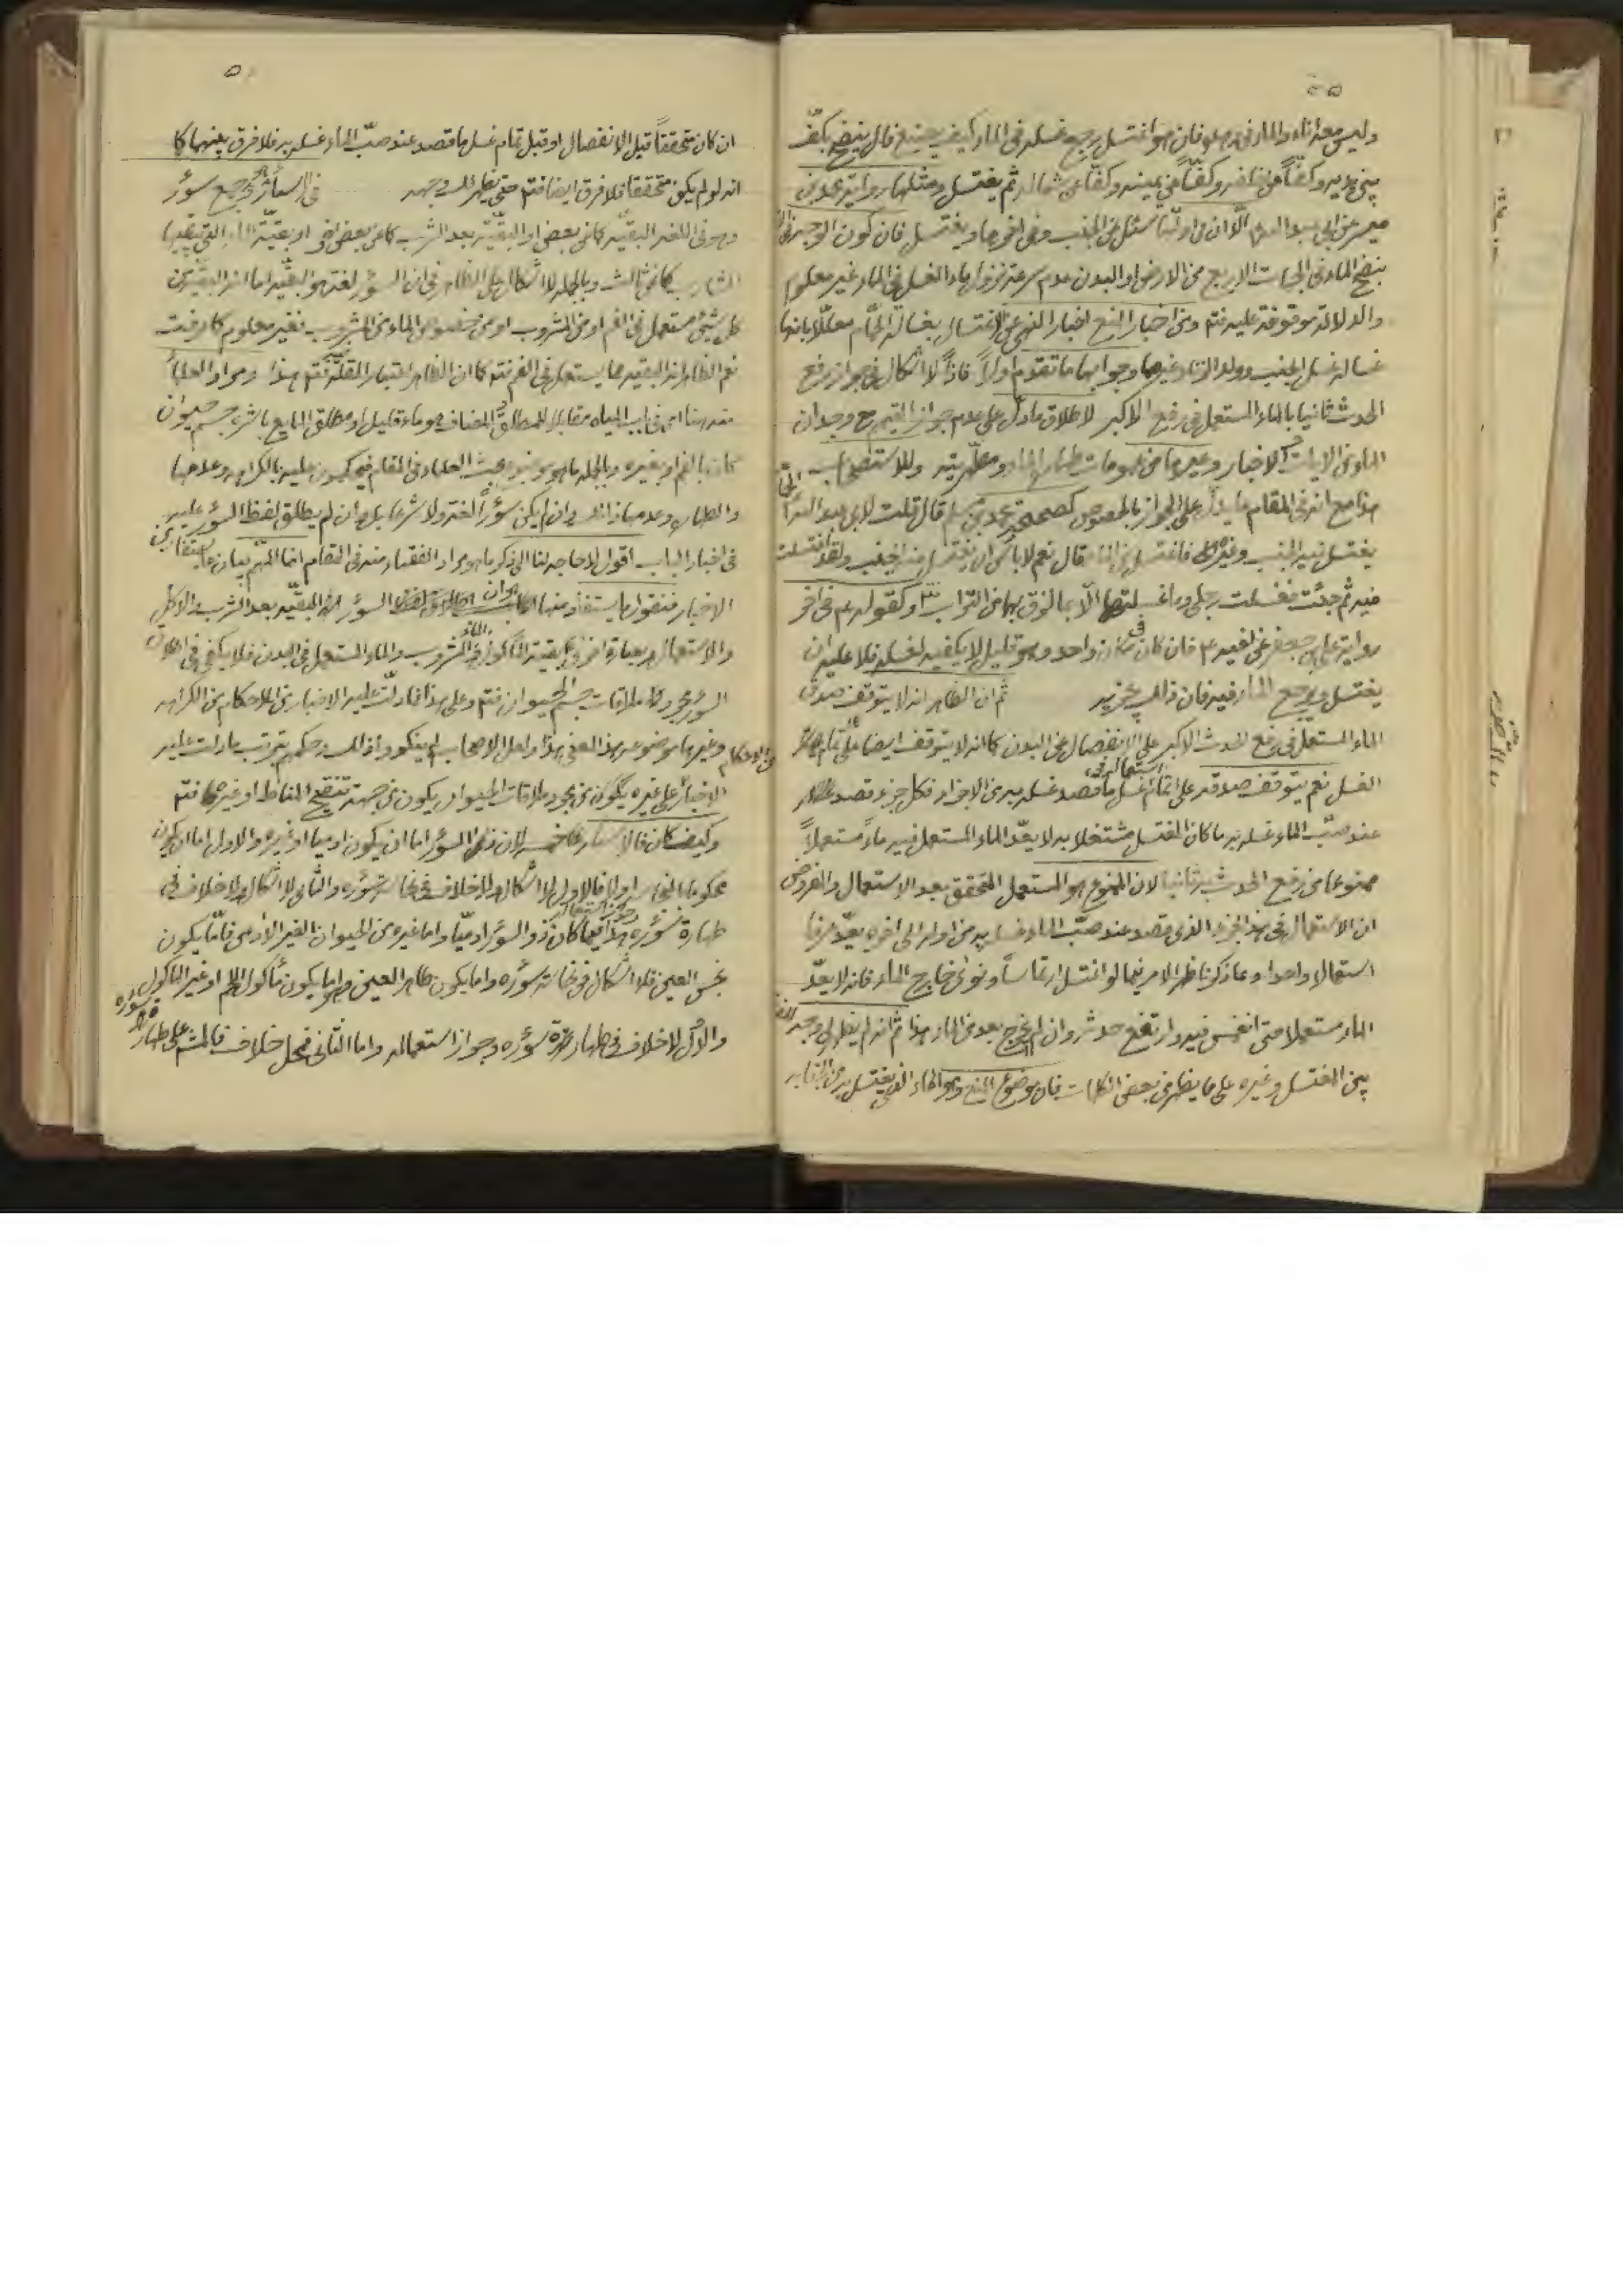 وليس معه اناء والماء فى وهدة فان هو اغتسل رجع غسله فى الماء كيف يصنع قال ينضح بكفّ
بين يديه وكفّاً من خلفه وكفّاً عن يمينه وكفّا عن شماله ثم يغتسل ومثلها رواية محمد بن
ميسر عن ابى عبد الله الّا ان
بنضح الماء فى الجهات الاربع من الارض او البدن عدم سرعة نزول ماء الغسل فى الماء غير معلوم
والدلالة موقوفة عليه فتم ومن اخبار المنع اخبار النهى عن الاغتسال بغسالة الحمّام معلّلا بانها
غسالة غسل الجنب وولد الزنا وغيرهما وجوابها ما تقدم اولاً فاذاً لا اشكال فى جواز رفع
الحدث ثانيا بالماء المستعمل فى رفع الاكبر لاطلاق ما دلّ على عدم جواز التيمم مع وجدان
الماء من الايات والاخبار وغيرها من عمومات طهارة الماء ومطهّريته وللاستصحاب
هذا مع انّ فى المقام ما يدلّ على الجواز بالخصوص كصحيحة محمد بن مسلم قال قلت لابى عبد الله
يغتسل فيه الجنب وغيره اغتسل من مائه قال نعم لا باس ان يغتسل منه الجنب ولقد اغتسلت
فيه ثم جئت فغسلت رجلى وما غسلتهما الّا بما لزق بهما من التراب وكقوله ع فى اخر
رواية على بن جعفر عن اخيه ع فان كان فى مكان واحد وهو قليل لا يكفيه لغسله فلا عليه ان
يغتسل ويرجع الماء فيه فان ذلك يجزيه ثم ان الظاهر انه لا يتوقف صدق
الماء المستعمل فى رفع الحدث الاكبر على الانفصال عن البدن كما انه لا يتوقف ايضا على تمام
الغسل نعم يتوقف صدقه على اتمام غسل ما قصد غسله به من الاجزاء فكل جزء قصد
عند صبّ الماء غسله به ما كان المغتسل مشتغلا به لا يعدّ الماء المستعمل فيه ماءً مستعملاً
ممنوعا من رفع الحدث به ثانيا لان الممنوع هو المستعمل المتحقق بعد الاستعمال والفروض
ان الاستعمال فى هذا الجزء الذى قصد عند صبّ الماء غسله به من اوله الى اخره يعدّ عرفا
استعمالا واحدا وعما ذكرنا ظهر الامر فيما لو اغتسل ارتماساً ونوى خارج الماء فانه لا يعدّ
الماء مستعملا متى انغمس فيه وارتفع حدثه وان لم يخرج بعد من الماء هذا ثم انه لم يظهر لى وجه الفرق
بين المغتسل وغيره على ما يظهر من بعض الكلمات فان موضوع المنع وهو الماء الذى يغتسل به من الجنابة
ان كان متحققاً قبل الانفصال او قبل تمام غسل ما قصد عند صبّ الماء غسله به فلا فرق بينهما كما
انه لو لم يكن متحققا فلا فرق ايضا فتم حتى يظهر لك وجهه فى الاسئار جمع سؤر
وهو فى اللغة البقيّة كما عن بعض او البقيّة بعد الشرب كما عن بعض اخر او بقيّة الماء التى يبقيها
الشارب كما عن ثالث وبالجملة لا اشكال على الظاهر فى ان السؤر لغة هو البقيّة اما انه البقيّة من
كل شئ مستعمل فى الفم او من المشروب او من خصوص الماء من المشروب فغير معلوم كما عرفت
نعم الظاهر انه البقية مما يستعمل فى الفم فتم كما ان الظاهر اعتبار القلّة فتم هذا ومراد العلماء
منه هنا اى فى باب المياه مقابلا للمطلق والمضاف هو ماء قليل او مطلق المايع باشره جسم حيوان
كان بالفم او بغيره وبالجملة ما هو موضوع بحث العلماء فى المقام فيحكمون عليه بالكراهة وعدمها
والطهارة وعدمها ذلك وان لم يكن سؤراً لغة ولا شرعا بل وان لم يطلق لفظ السؤر عليه
فى اخبار الباب اقول لا حاجة لنا الى ذكر ما هو مراد الفقهاء منه فى المقام انما المهمّ بيان ما يستفاد من
الاخبار فنقول ما يستفاد منها هو ان السؤر هو البقيّة بعد الشرب والاكل
والاستعمال وبعبارة اخرى بقيّة الماكول والمشروب والماء المستعمل فى البدن فلا يكفى فى اطلاق
السؤر مجرد ملاقات جسم الحيوان فتم وعلى هذا فما دلّت عليه الاخبار من الاحكام من الكراهة
وغيرها موضوعه هذا المعنى هذا ولعل الاصحاب لم ينكروا ذلك وحكمهم بترتب ما دلت عليه
الاخبار على غيره يكون من مجرد ملاقات الحيوان يكون من جهة تنقيح المناط او غيره فتم
وكيف كان فالاسئار لان ذى السؤر اما ان يكون ادميا او غيره والاول اما ان يكون
محكوما بالنجاسة او لا فالاول لا اشكال ولا خلاف فى نجاسة سؤره والثانى لا اشكال ولا خلاف فى
طهارة سؤره وجواز استعماله هذا فيما كان ذو السؤر ادميّا واما غيره من الحيوان الغير الادمى فامّا يكون
نجس العين فلا اشكال فى نجاسة سؤره واما يكون طاهر العين وهو اما يكون مأكول اللحم او غير المأكول
والاول لا خلاف فى طهارة سؤره وجواز استعماله واما الثانى فمحل خلاف فالمشهور على طهارة سؤره